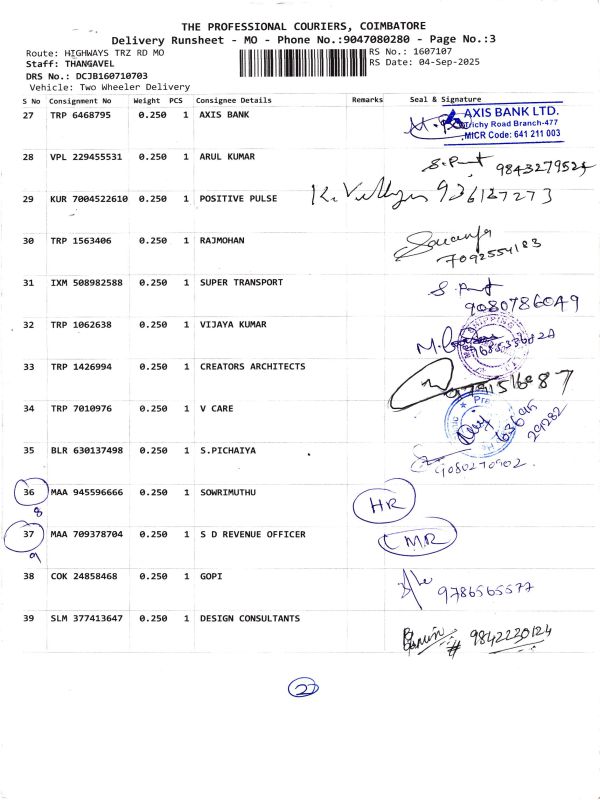 THE PROFESSIONAL COURIERS, COIMBATORE
Delivery Runsheet - MO - Phone No.:9047080280 - Page No.:3
Route: HIGHWAYS TRZ RD MO RS No.: 1607107
Staff: THANGAVEL RS Date: 04-Sep-2025
DRS No.: DCJB160710703
Vehicle: Two Wheeler Delivery
S No Consignment No Weight PCS Consignee Details Remarks Seal & Signature
27 TRP 6468795 0.250 1 AXIS BANK
AXIS BANK LTD.
Trichy Road Branch-477
MICR Code: 641 211 003
28 VPL 229455531 0.250 1 ARUL KUMAR
29 KUR 7004522610 0.250 1 POSITIVE PULSE
30 TRP 1563406 0.250 1 RAJMOHAN
7092554183
31 IXM 508982588 0.250 1 SUPER TRANSPORT
9080786049
32 TRP 1062638 0.250 1 VIJAYA KUMAR
33 TRP 1426994 0.250 1 CREATORS ARCHITECTS
34 TRP 7010976 0.250 1 V CARE
35 BLR 630137498 0.250 1 S.PICHAIYA
9080270902.
36 MAA 945596666 0.250 1 SOWRIMUTHU HR
8
37 MAA 709378704 0.250 1 S D REVENUE OFFICER MR
9
38 COK 24858468 0.250 1 GOPI
9786565577
39 SLM 377413647 0.250 1 DESIGN CONSULTANTS
9842220124
22